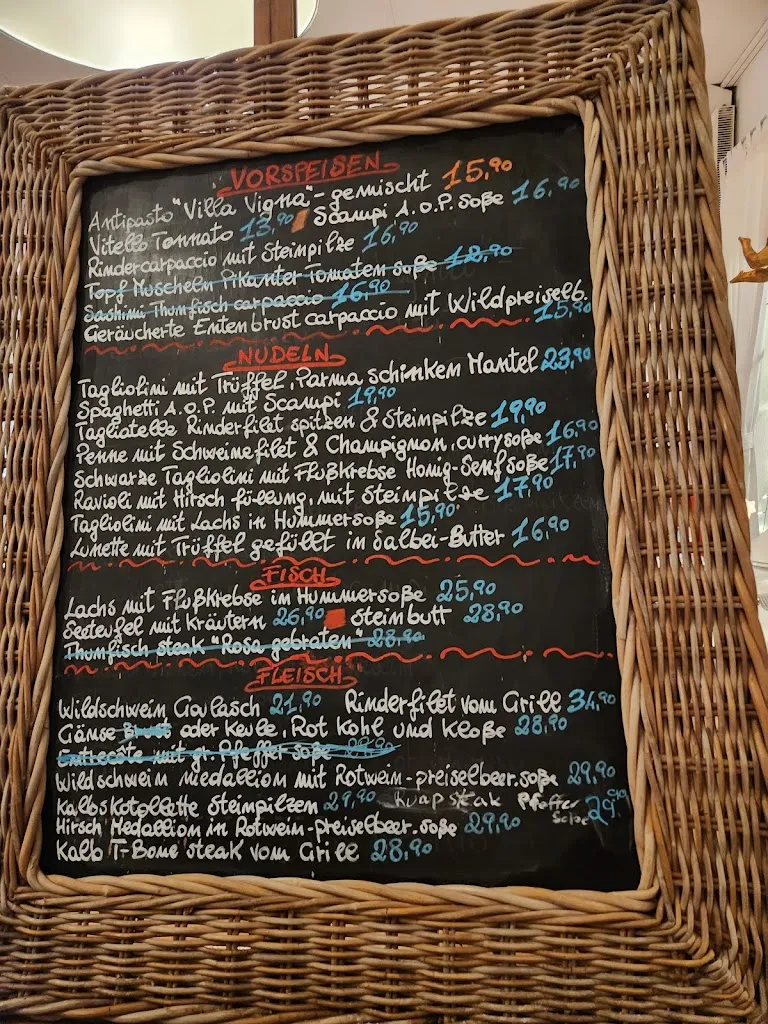 VORSPEISEN
Antipasto "Villa Vigna"- gemischt 15,90
Vitello Tonnato 13,90 Scampi A.O.P. Soße 16,90
Rindercarpaccio mit Steinpilze 16,90
Topf Muscheln Pikanter Tomaten soße 18,90
Sashimi Thunfisch carpaccio 16,90
Geräucherte Entenbrust carpaccio mit Wildpreiselb. 15,90
NUDELN
Tagliolini mit Trüffel, Parma Schinken Mantel 23,90
Spaghetti A.O.P. mit Scampi 19,90
Tagliatelle Rinderfilet spitzen & Steinpilze 19,90
Penne mit Schweinefilet & Champignon, currysoße 16,90
Schwarze Tagliolini mit Flußkrebse Honig-Senfsoße 17,90
Ravioli mit Hirsch füllung, mit Steinpilze 17,90
Tagliolini mit Lachs in Hummersoße 15,90.
Lunette mit Trüffel gefüllt in Salbei-Butter 16,90
FISCH
Lachs mit Flußkrebse in Hummersoße 25,90
Seeteufel mit Kräutern 26,90 Steinbutt 28,90
Thunfisch steak "Rosa gebraten" 28,90
FLEISCH
Wildschwein Goulasch 21,90 Rinderfilet vom Grill 34,90
Gänse Brust oder Keule, Rot Kohl und Kloße 28,90
Entrecote mit gr. Pfeffer soße 29,90
Wildschwein Medallion mit Rotwein-preiselbeer.soße 29,90
Kalbskotollatte Steinpilzen 29,90 Rumpsteak Pfeffer Soße 29,90
Hirsch Medallion in Rotwein-preiselbeer.soße 29,90
Kalb T-Bone steak vom Grill 28,90